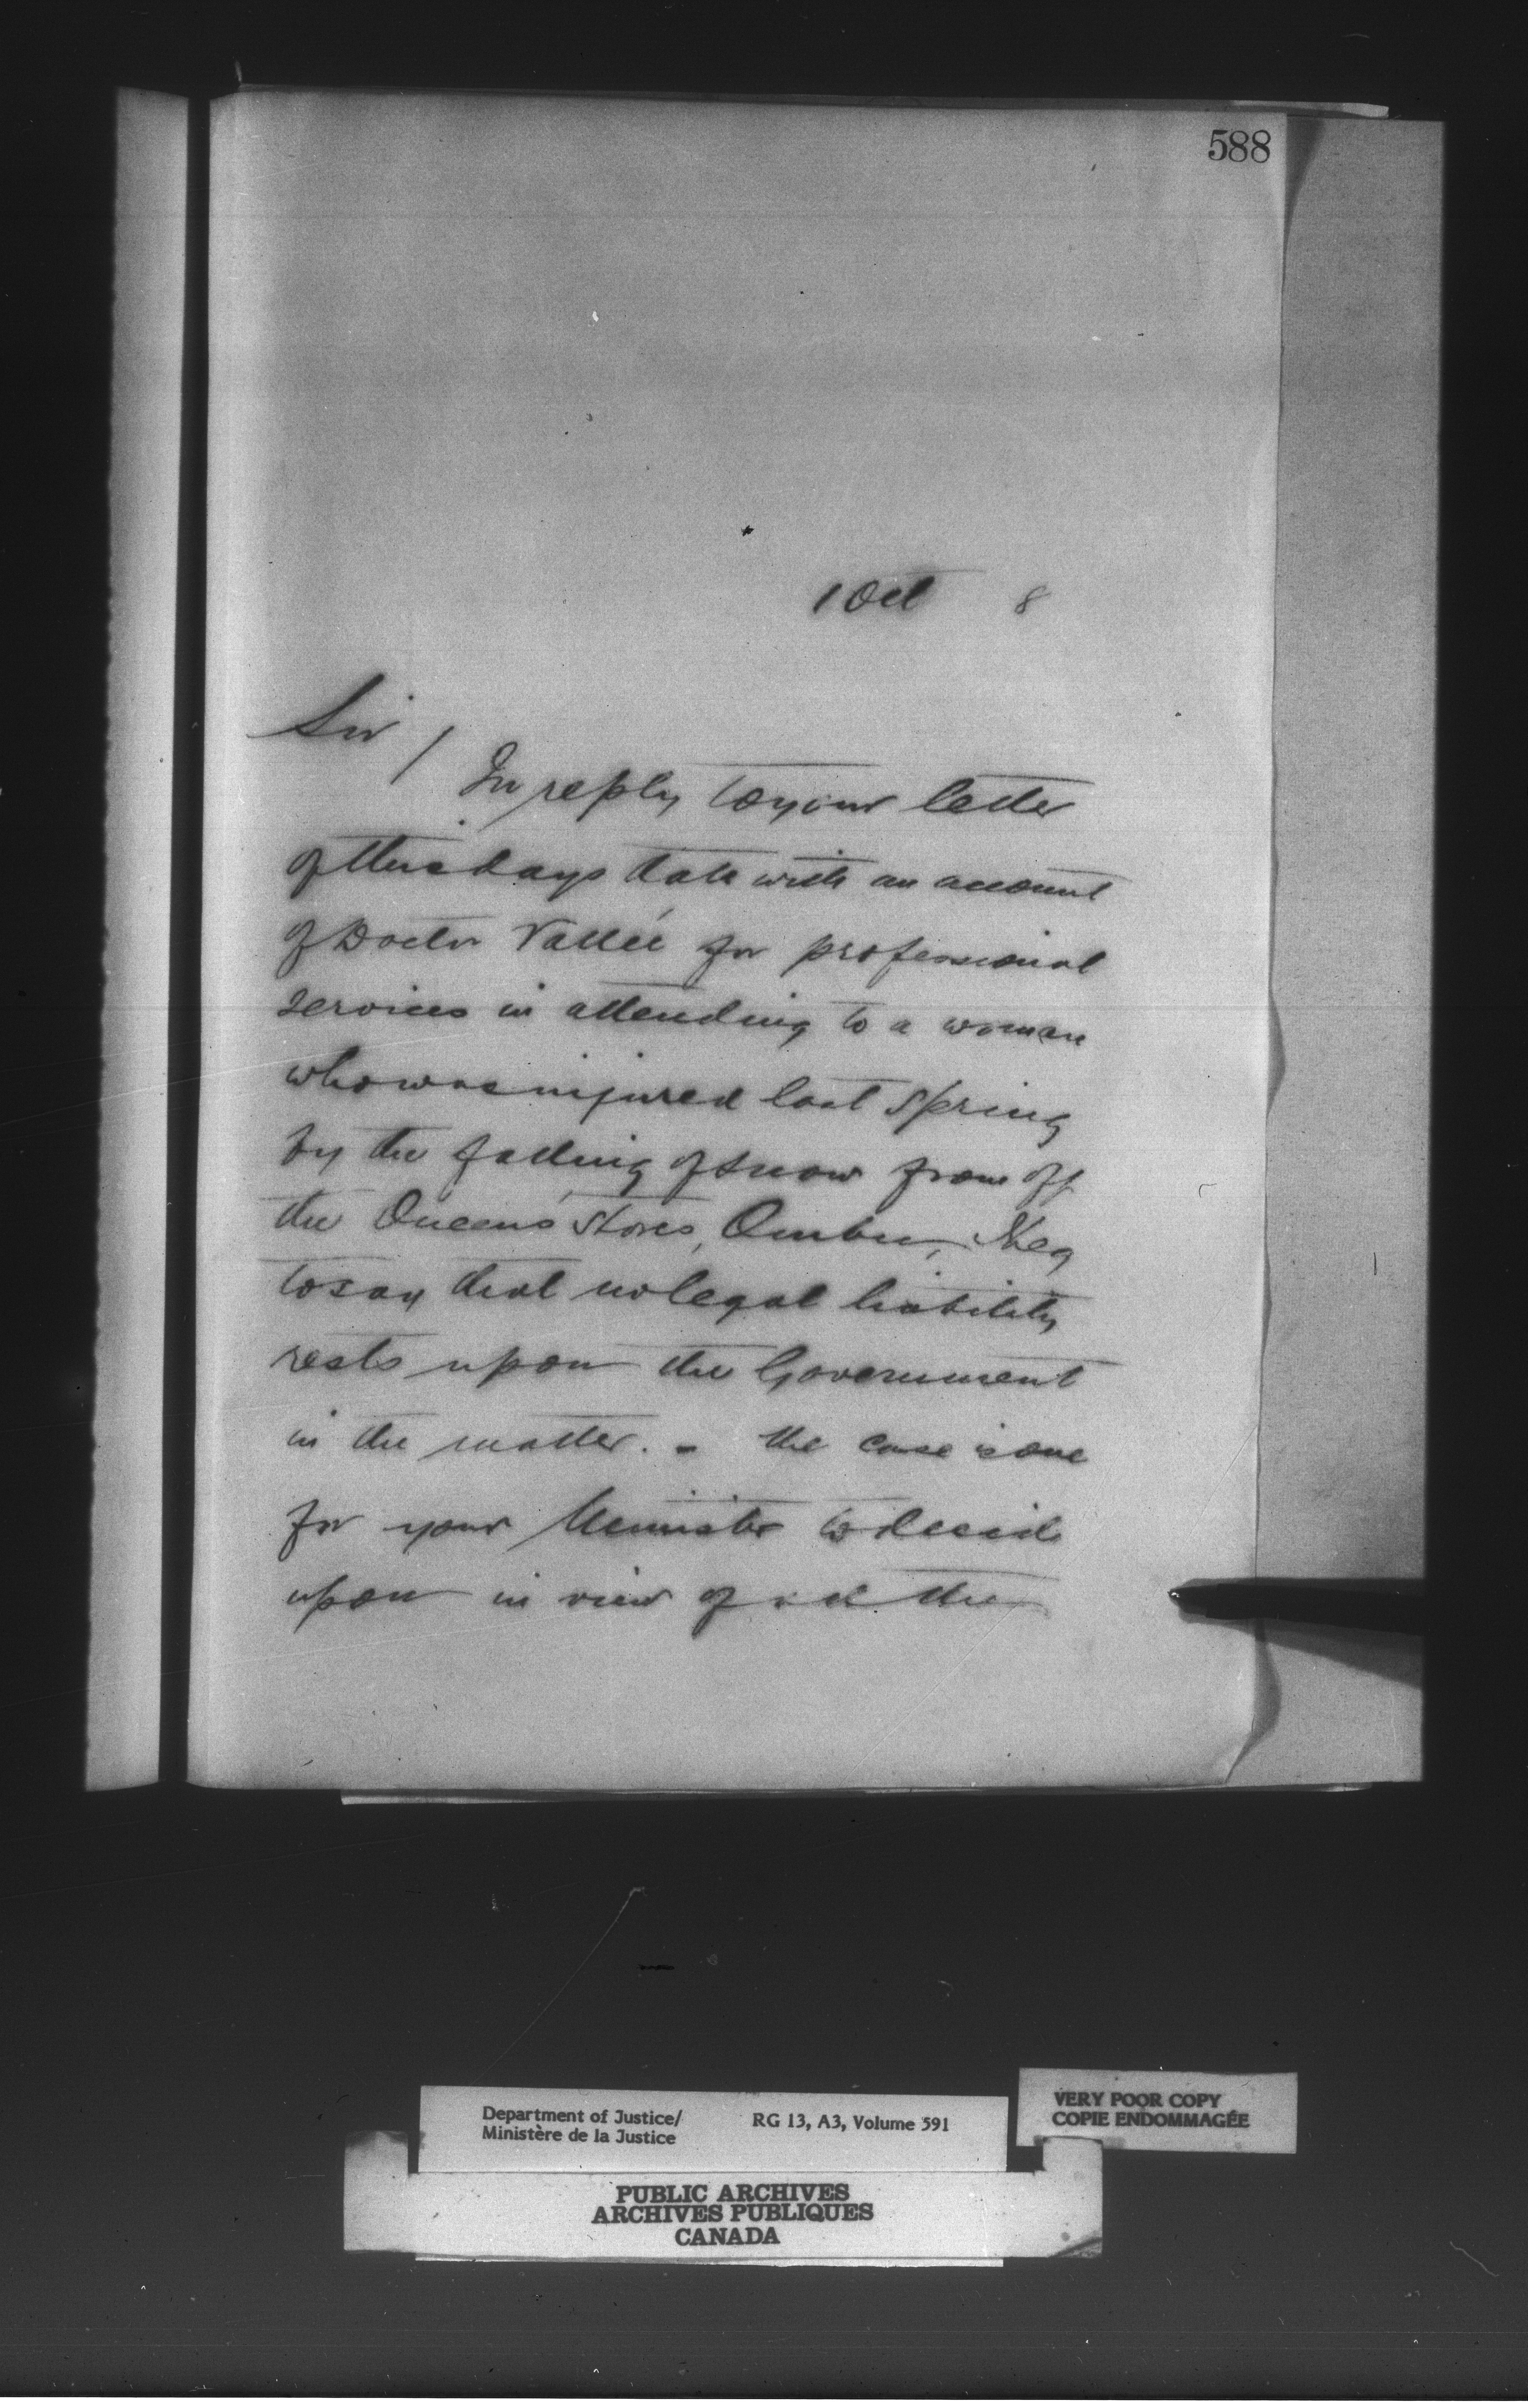 588
1 Oct 8
Sir /
In reply to your letter
of this days date with an account
of Doctor Vallée for professional
services in attending to a woman
who was injured last Spring
by the falling of snow from off
the Queens' Stores, Quebec, I beg
to say that no legal liability
rests upon the Government
in the matter. - the case is one
for your Minister to decide
upon in view of all the
Department of Justice/ RG 13, A3, Volume 591
Ministère de la Justice
VERY POOR COPY
COPIE ENDOMMAGÉE
PUBLIC ARCHIVES
ARCHIVES PUBLIQUES
CANADA